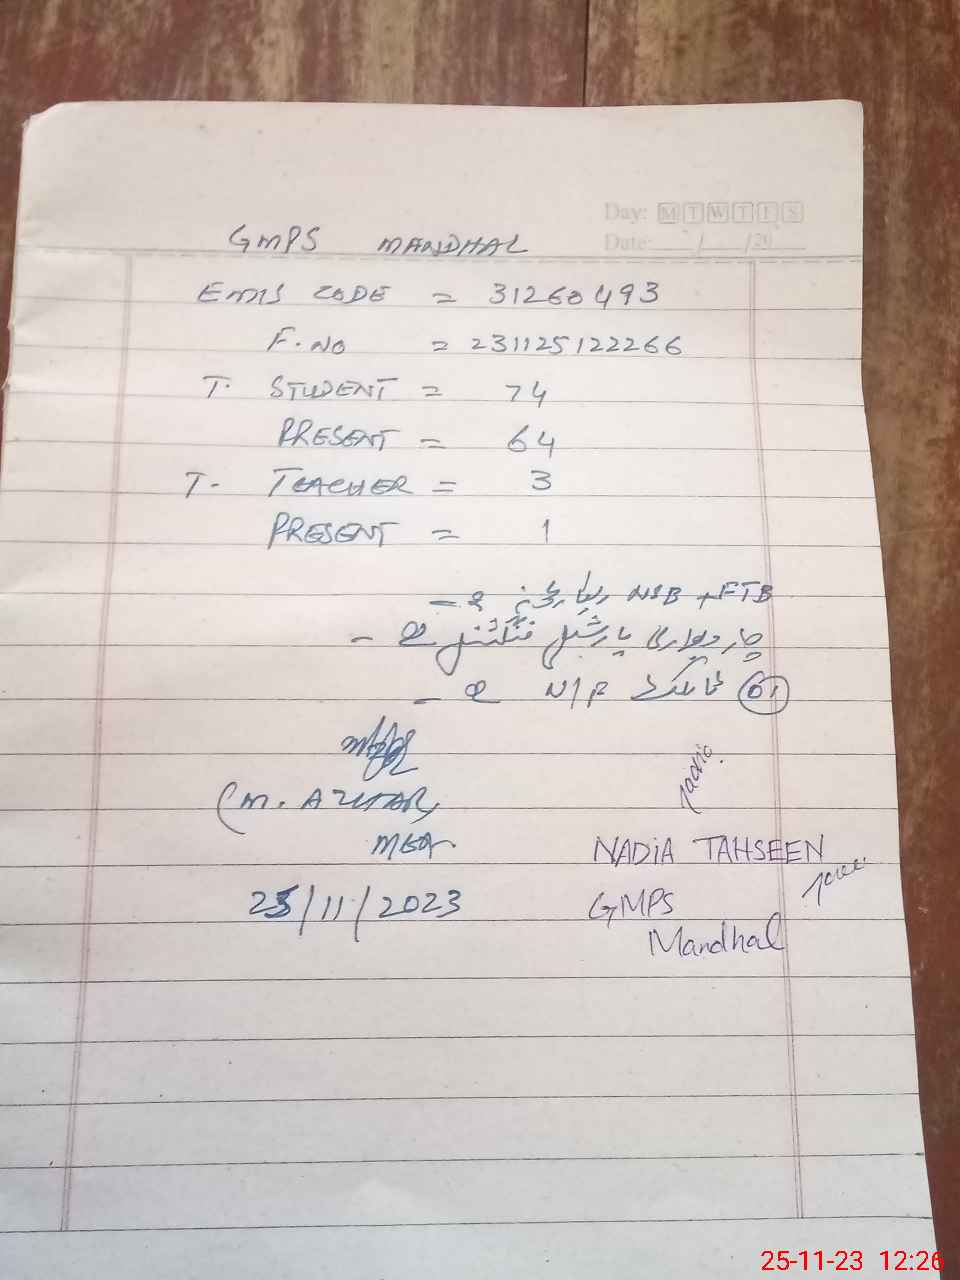 Day: M T W T F S
Date: / /20
GMPS MANDHAL
EMIS CODE = 31260493
F.NO = 231125122266
T. STUDENT = 74
PRESENT = 64
T- TEACHER = 3
PRESENT = 1
NSB + FTB ہے -
چار دیواری پارشل فنکشنل ہے -
01 ٹائلٹ N/F ہے -
(M. AZHAR)
MEA
25/11/2023
NADiA TAHSEEN
GMPS
Mandhal
25-11-23 12:26